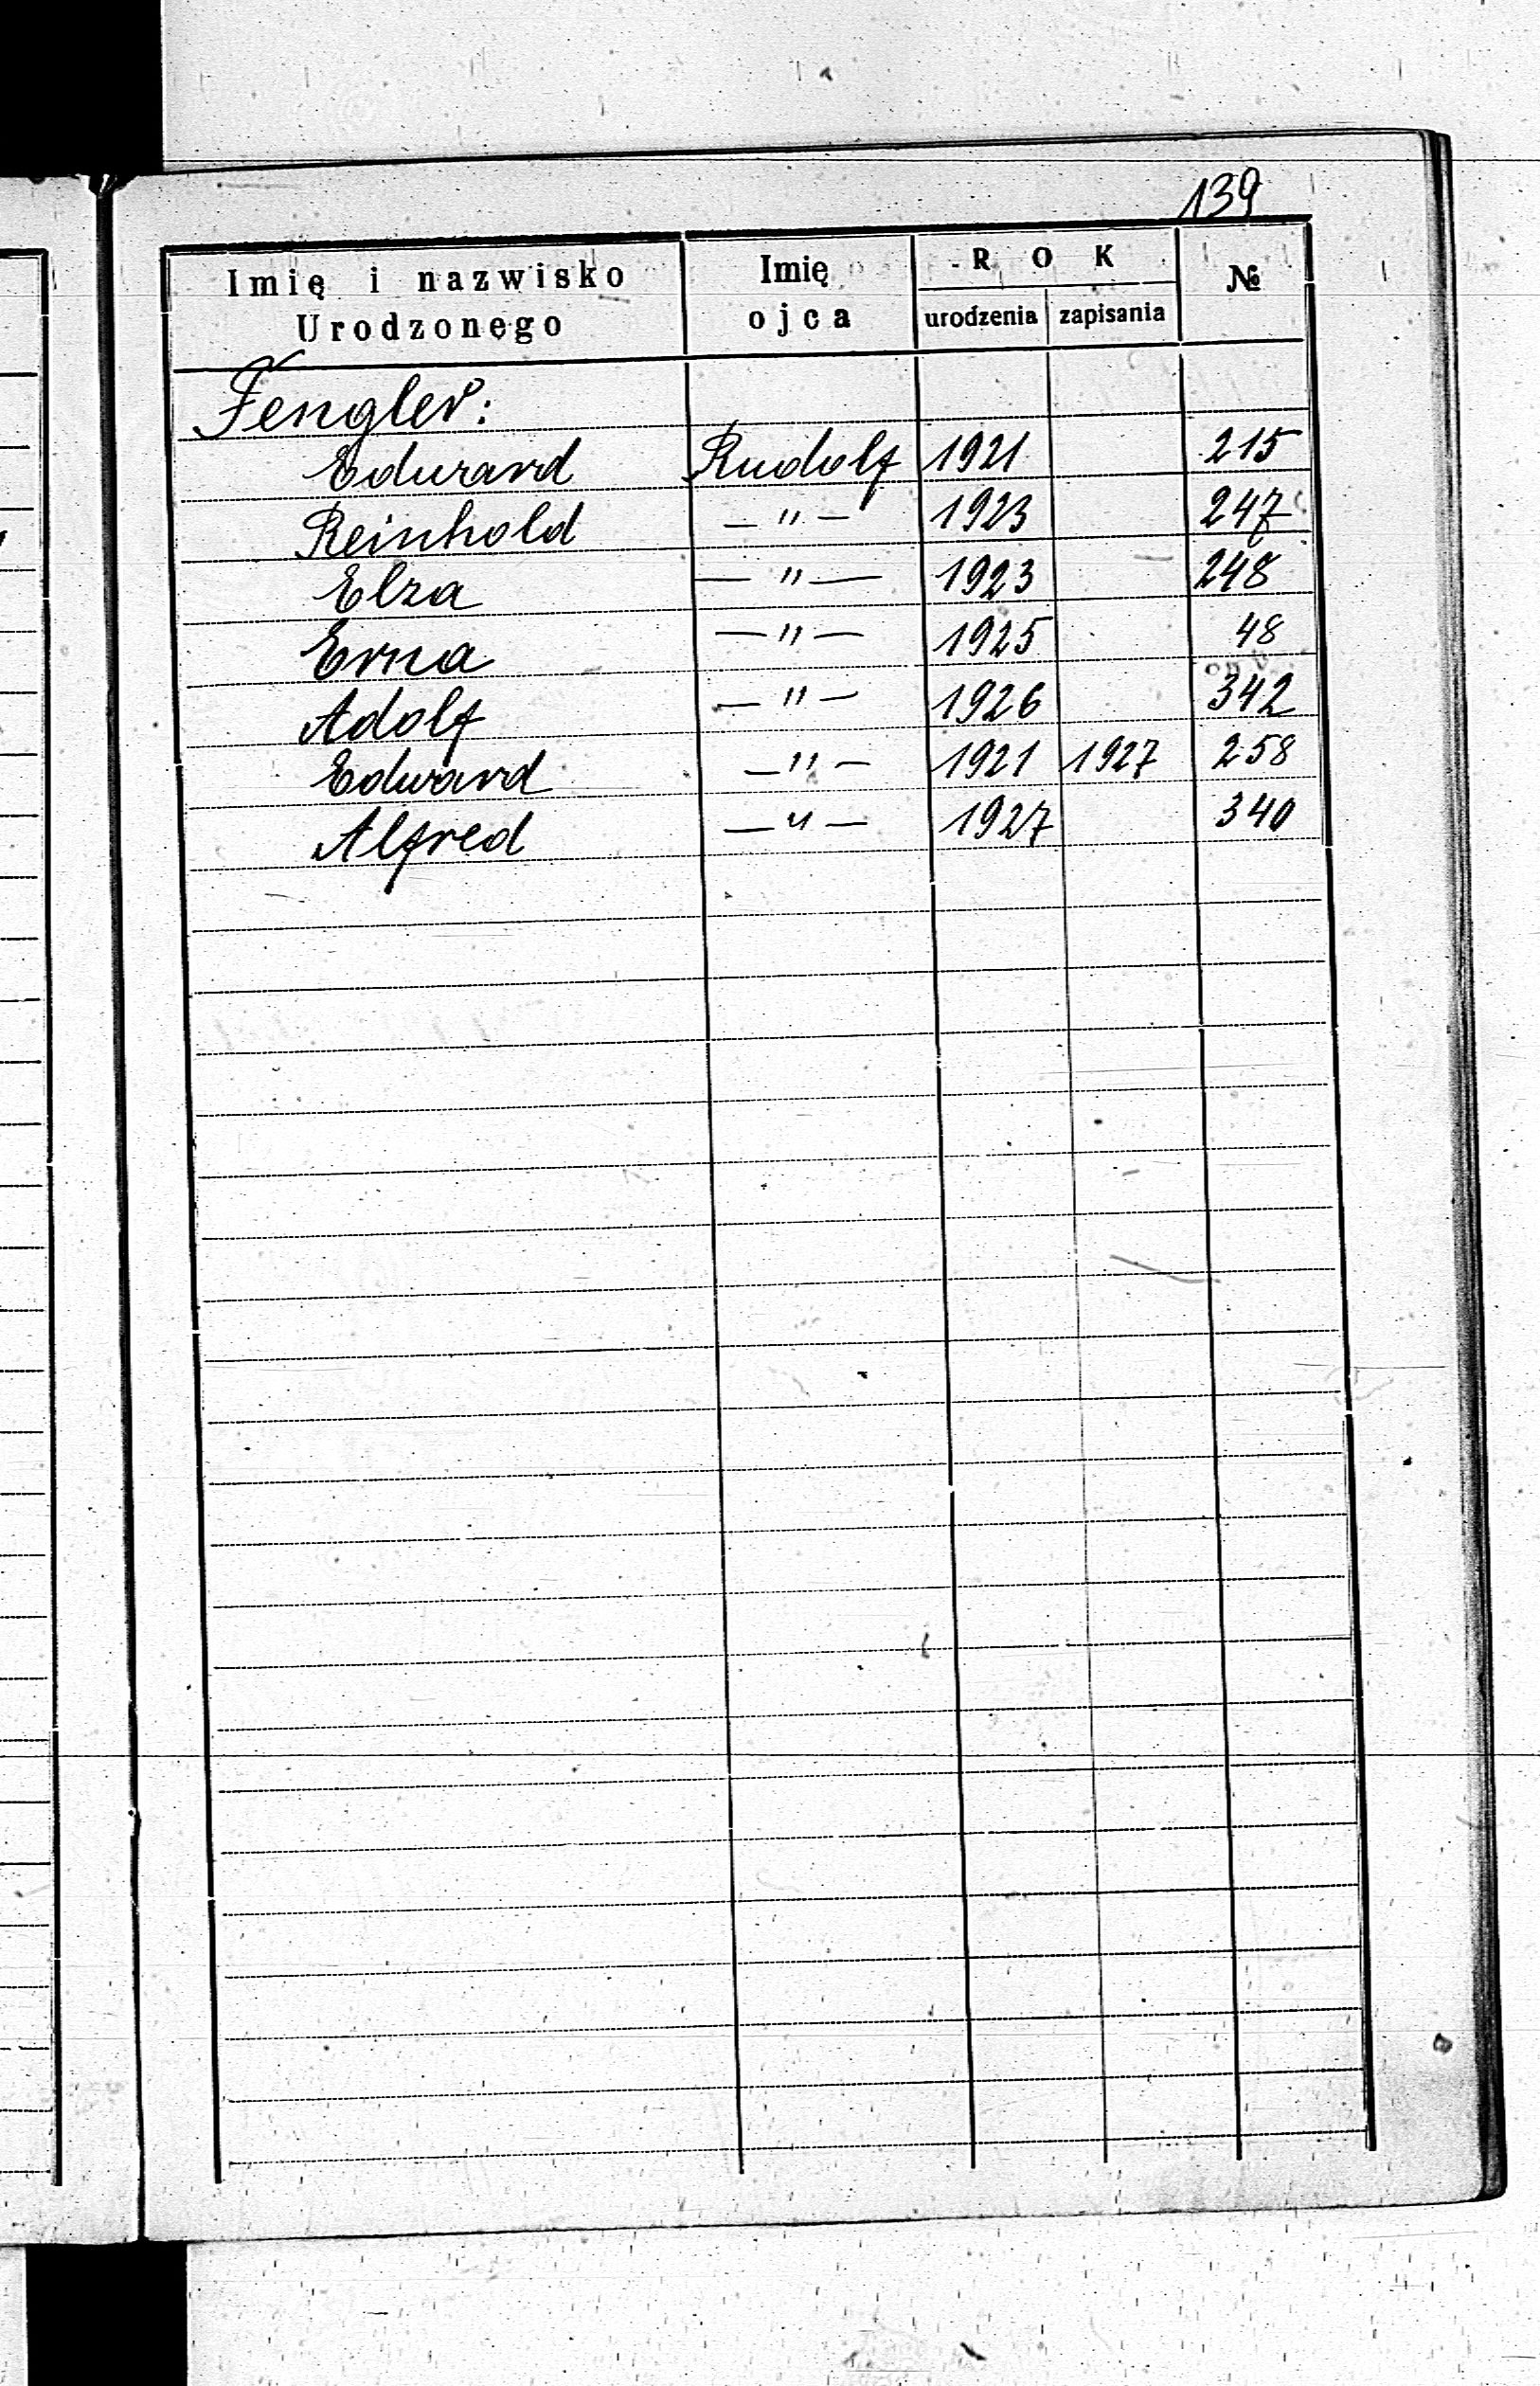 139
Imię i nazwisko Urodzonego | Imię ojca | ROK urodzenia | ROK zapisania | №
Fengler:
Edward Rudolf 1921 215
Reinhold — " — 1923 247
Elza — " — 1923 248
Erna — " — 1925 48
Adolf — " — 1926 342
Edward — " — 1921 1927 258
Alfred — " — 1927 340